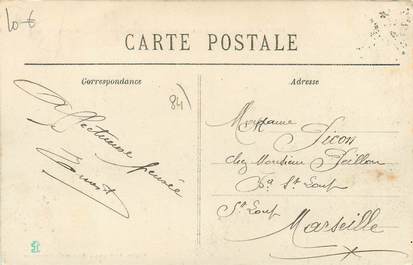 10 €
CARTE POSTALE
Correspondance
Adresse
84
Affectueuse pensée
Madame
Sicon
chez Monsieur
St Loup
St Loup
Marseille